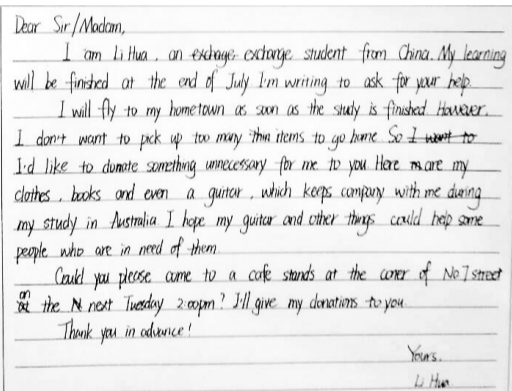 Dear Sir/Madam,
I am Li Hua, an exchage exchange student from China. My learning
will be finished at the end of July. I'm writing to ask for your help.
I will fly to my hometown as soon as the study is finished. However,
I don't want to pick up too many thin items to go home. So I want to
I'd like to donate something unnecessary for me to you. Here are my
clothes, books and even a guitar, which keeps company with me during
my study in Australia. I hope my guitar and other things could help some
people who are in need of them.
Could you please come to a cafe stands at the corer of No.7 street
on the next Tuesday 2:00pm? I'll give my donations to you.
Thank you in advance!
Yours,
Li Hua